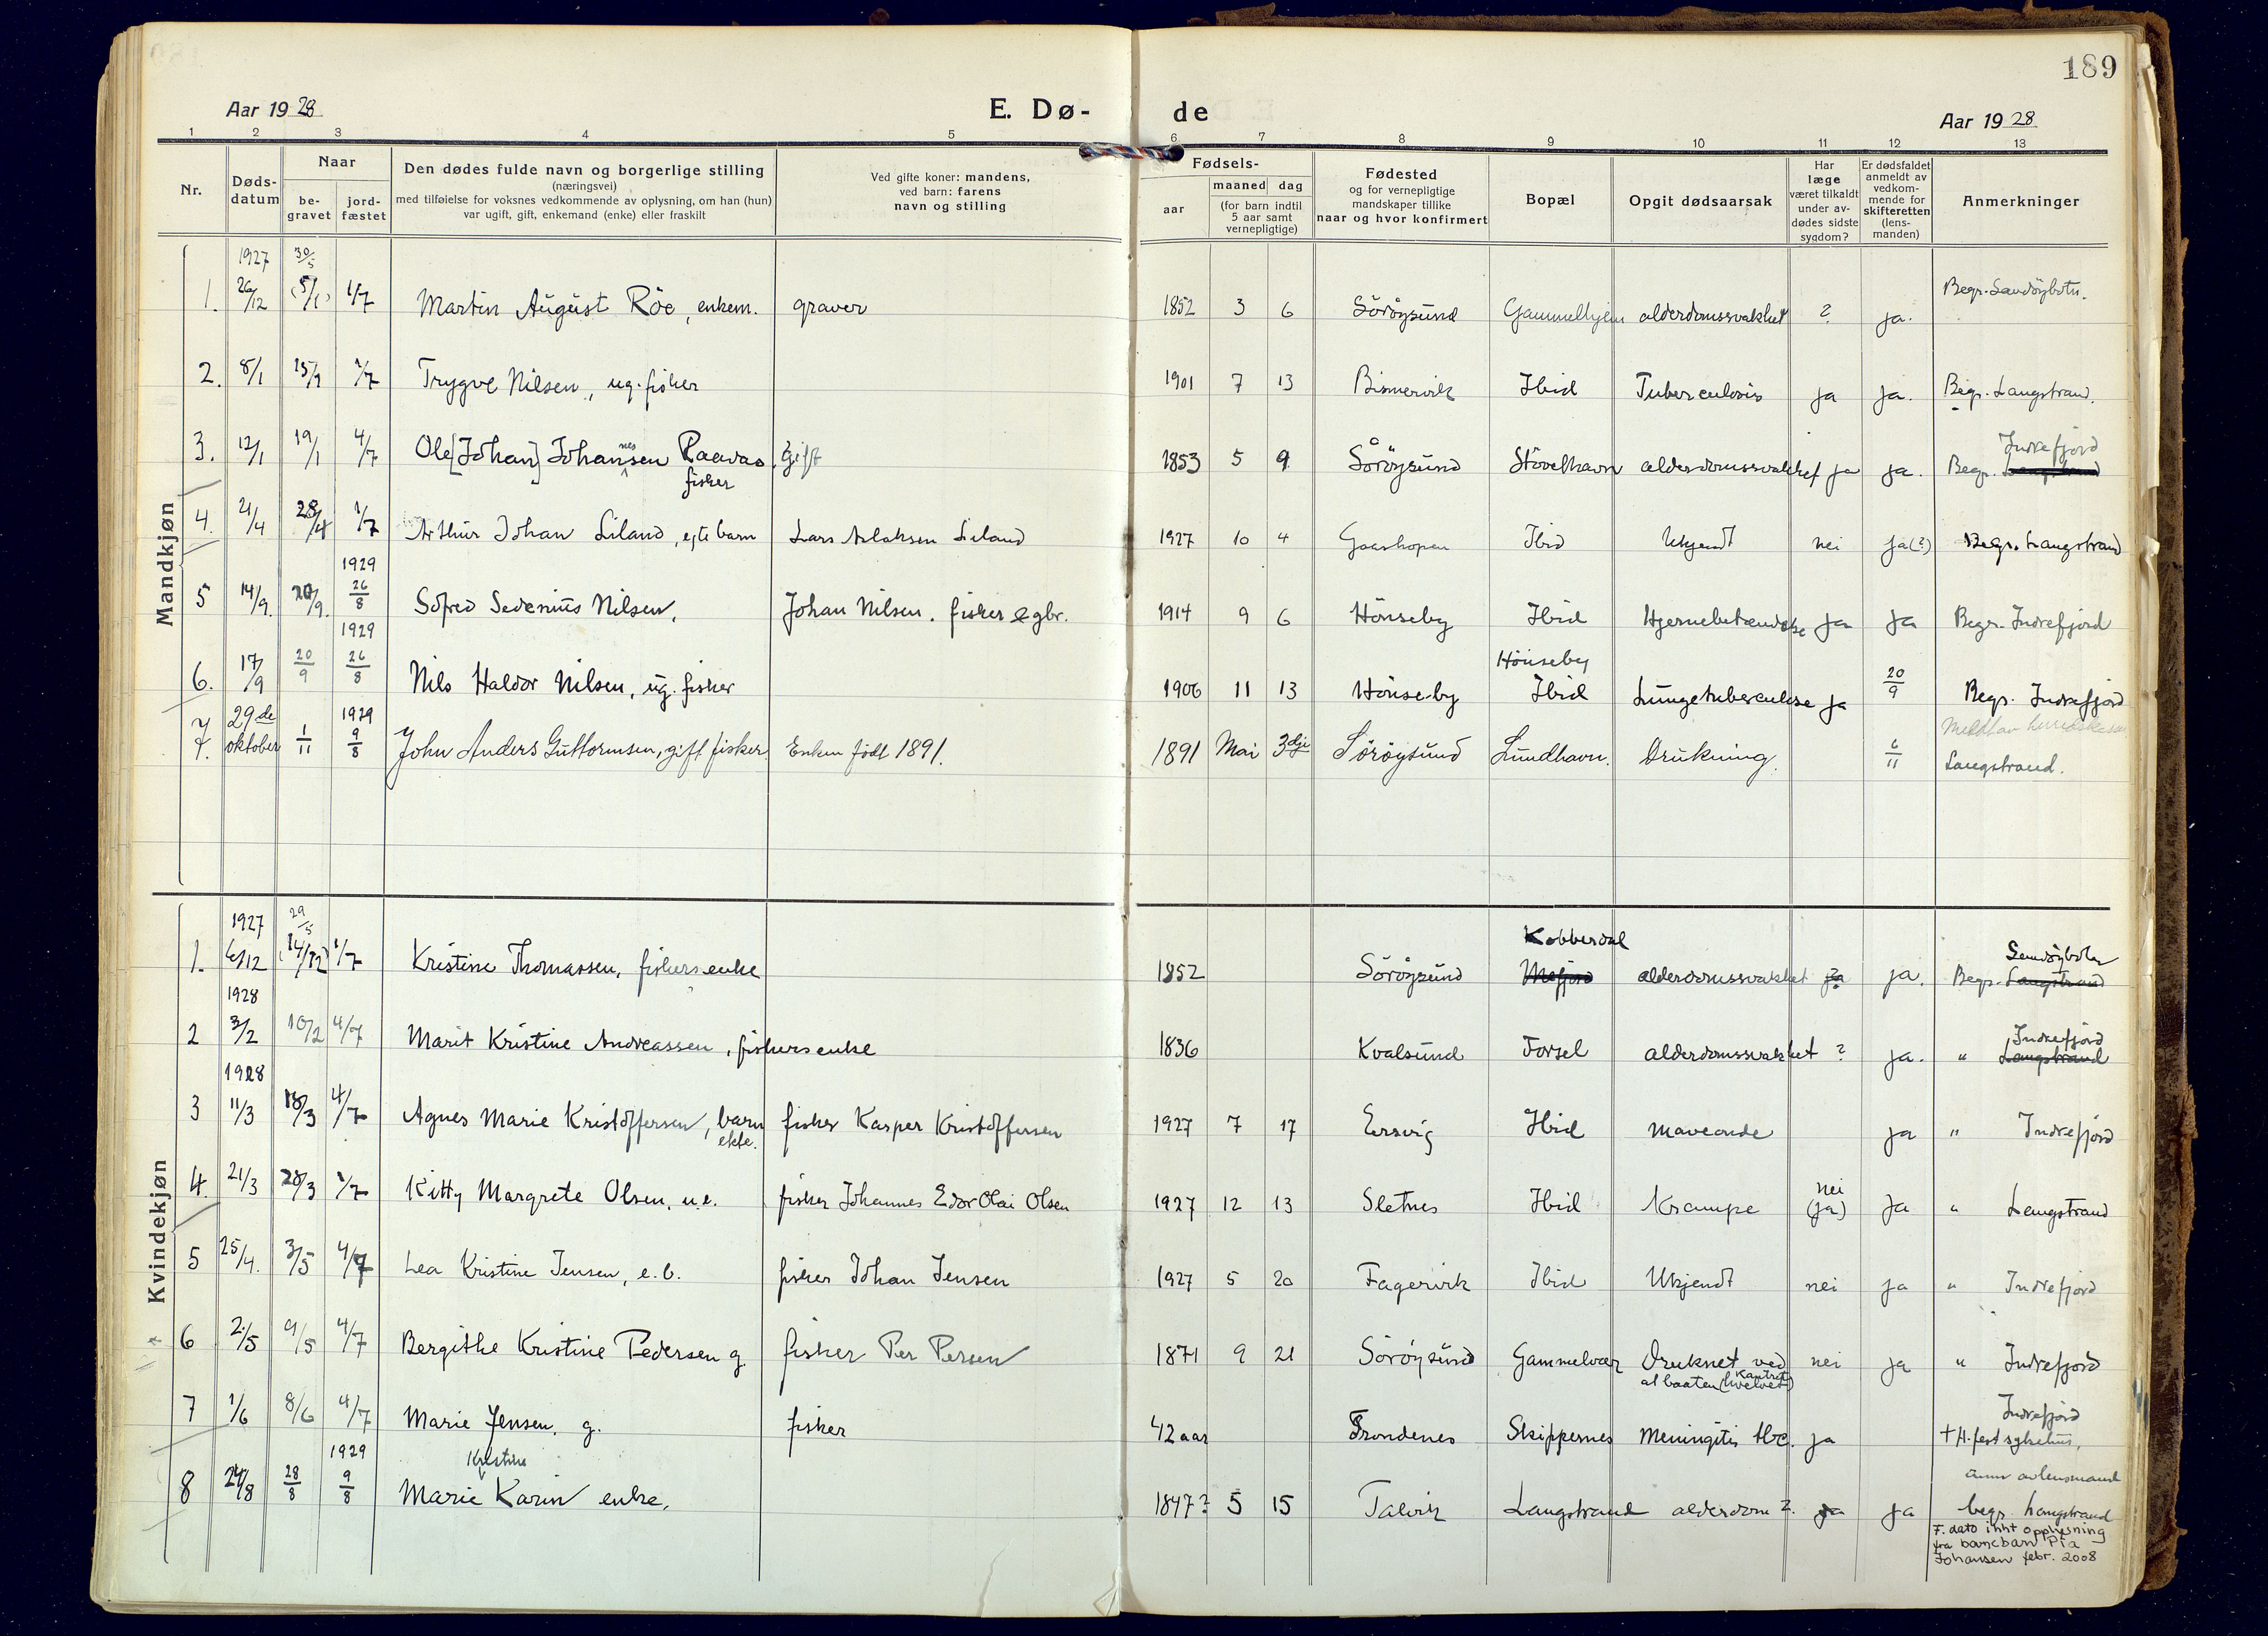 189
Aar 1928 E. Dø- de Aar 1928
1 2 3 4 5 6 7 8 9 10 11 12 13
Nr.
Døds-
datum
Naar
be-
gravet
jord-
fæstet
Den dødes fulde navn og borgerlige stilling
(næringsvei)
med tilføielse for voksnes vedkommende av oplysning, om han (hun)
var ugift, gift, enkemand (enke) eller fraskilt
Ved gifte koner: mandens,
ved barn: farens
navn og stilling
Fødsels-
aar
maaned dag
(for barn indtil
5 aar samt
vernepligtige)
Fødested
og for vernepligtige
mandskaper tillike
naar og hvor konfirmert
Bopæl
Opgit dødsaarsak
Har
læge
været tilkaldt
under av-
dødes sidste
sygdom?
Er dødsfaldet
anmeldt av
vedkom-
mende for
skifteretten
(lens-
manden)
Anmerkninger
Mandkjøn
1927 30/5
1. 26/12 (5/1) 1/7 Martin August Röe, enkem. graver 1852 3 6 Söröysund Gammelhjem alderdomssvakhet ? ja. Begr. Sandöybotn.
2. 8/1 15/1 1/7 Trygve Nilsen, ug. fisker 1901 7 13 Bismervik Ibid Tuberculosis ja ja. Begr. Langstrand.
3. 12/1 19/1 4/7 Ole [Johan] Johannessen Raavas, gift 1853 5 9 Söröysund Stövelhavn alderdomssvakhet ja ja. Begr. Langstrand Indrefjord
fisker
4. 21/4 28/4 1/7 Arthur Johan Liland, egte barn Lars Aslaksen Liland 1927 10 4 Gaashopen Ibid Ukjendt nei ja(?) Begr. Langstrand
1929
5 14/9. 20/9. 26/8 Sofred Sedenius Nilsen, Johan Nilsen. fisker & gbr. 1914 9 6 Hönseby Ibid Hjernebetændelse ja ja Begr. Indrefjord
1929 Hönseby
6. 17/9 20/9 26/8 Nils Haldor Nilsen, ug. fisker 1906 11 13 Hönseby Ibid Lungetuberculose ja 20/9 Begr. Indrefjord
1929
7. 29de oktober 1/11 9/8 John Anders Guttormsen, gift fisker. Enken født 1891. 1891 Mai 3dje Sörøysund Lundhavn. Drukning. 6/11 Langstrand.
Kvindekjøn
1927 29/5 Kobberdal Sandöybotn
1. 6/12 (14/12) 1/7 Kristine Thomassen, fiskersenke 1852 Söröysund Mefjord alderdomssvakhet ja ja. Begr. Langstrand
1928 Indrefjord
2 3/2 10/2 4/7 Marit Kristine Andreassen, fiskersenke 1836 Kvalsund Forsel alderdomssvakhet ? ja. " Langstrand
1928
3 11/3 18/3 4/7 Agnes Marie Kristoffersen, barn fisker Kasper Kristoffersen 1927 7 17 Ersvig Ibid maveonde ja " Indrefjord
ekte.
nei
4. 21/3 28/3 1/7 Kitty Margrete Olsen, u.e. fisker Johannes Edor Olai Olsen 1927 12 13 Sletnes Ibid Krampe (ja) ja " Langstrand
5 25/4. 3/5 4/7 Lea Kristine Jensen, e.b. fisker Johan Jensen 1927 5 20 Fagervik Ibid Ukjendt nei ja " Indrefjord
6 2/5 9/5 4/7 Bergithe Kristine Pedersen g. fisker Per Persen 1871 9 21 Söröysund Gammelvær Druknet ved nei ja " Indrefjord
kantret
at baaten (hvelvet)
Indrefjord
7 1/6 8/6 4/7 Marie Jensen, g. fisker 42 aar Trondenes Skippernes Meningitis tbc. ja + H.fest sykehus.
1929 Kristine anm av lensmand
8 24/8 28/8 9/8 Marie Karin enke, 1847? 5 15 Talvik Langstrand alderdom ?. ja ja begr. Langstrand
F. dato ihht opplysning
fra barnebarn Pia
Johansen febr. 2008